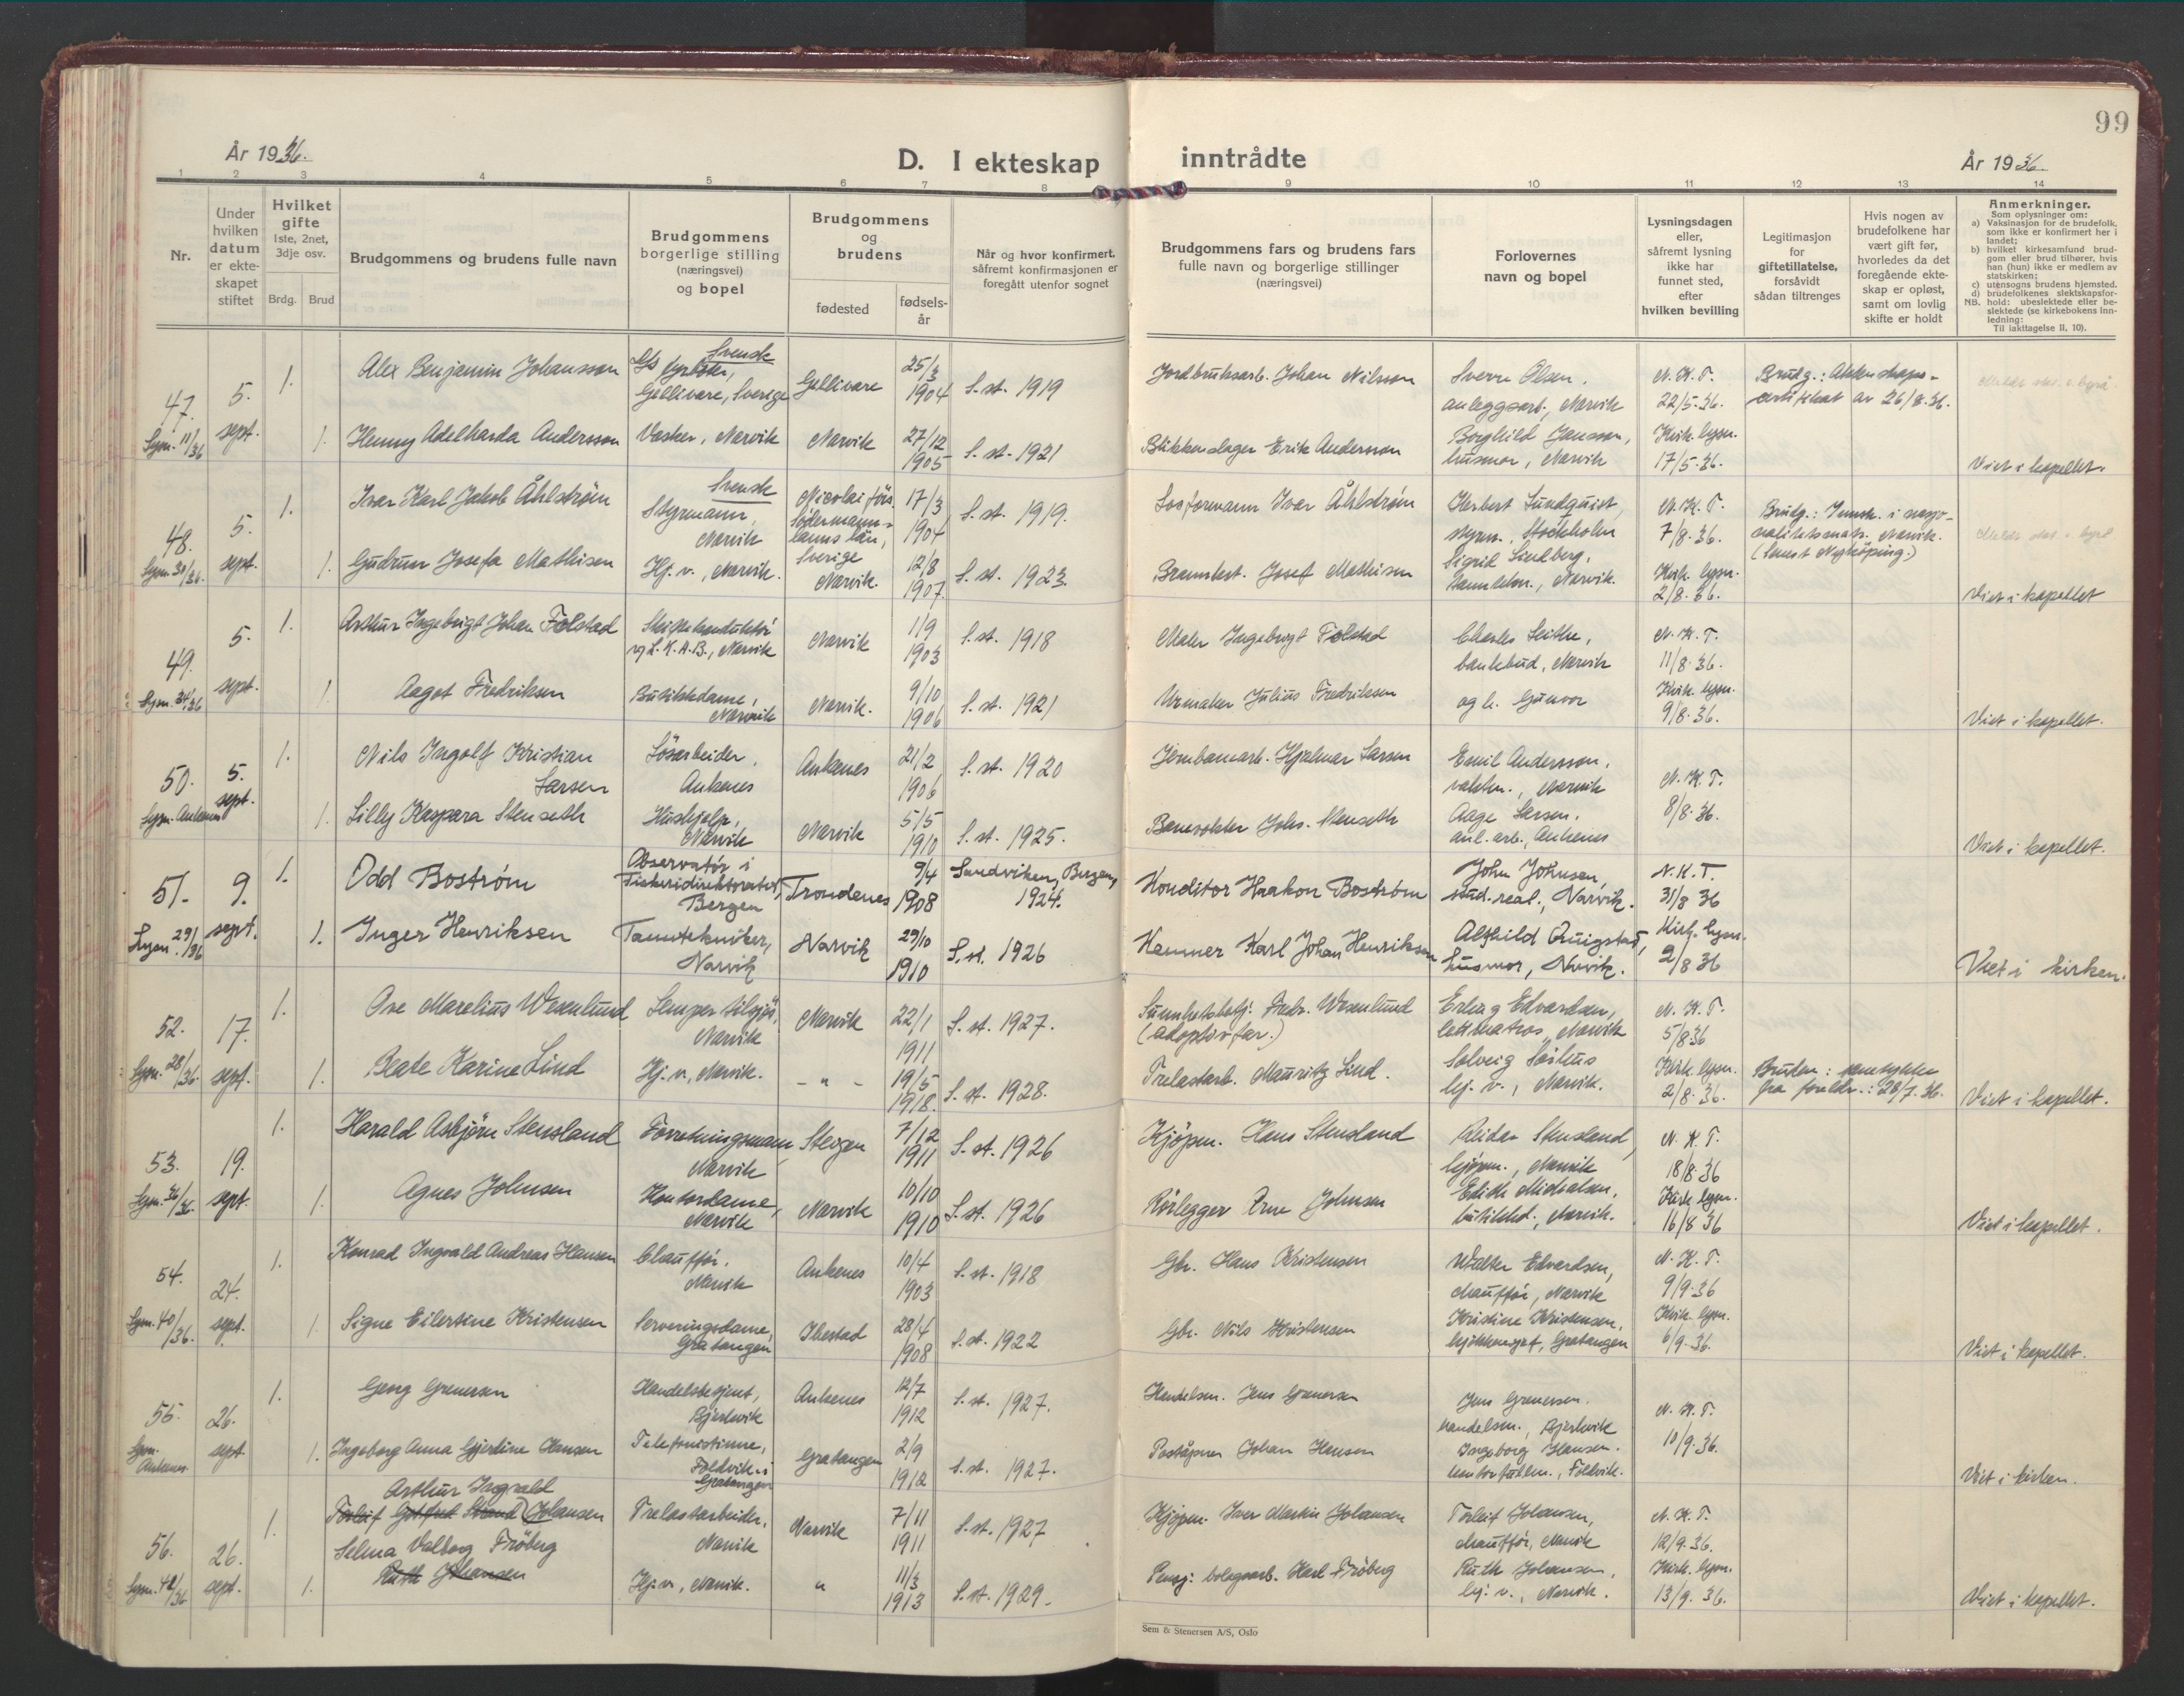 99
År 1936.
D. I ekteskap inntrådte
År 1936.
1 2 3 4 5 6 7 8 9 10 11 12 13 14
Nr.
Under hvilken datum er ekteskapet stiftet
Hvilket gifte
1ste, 2net, 3dje osv.
Brdg. Brud
Brudgommens og brudens fulle navn
Brudgommens borgerlige stilling (næringsvei) og bopel
Brudgommens og brudens
fødested
fødselsår
Når og hvor konfirmert, såfremt konfirmasjonen er foregått utenfor sognet
Brudgommens fars og brudens fars fulle navn og borgerlige stillinger (næringsvei)
Forlovernes navn og bopel
Lysningsdagen eller, såfremt lysning ikke har funnet sted, efter hvilken bevilling
Legitimasjon for giftetillatelse, forsåvidt sådan tiltrenges
Hvis nogen av brudefolkene har vært gift før, hvorledes da det foregående ekteskap er opløst, samt om lovlig skifte er holdt
Anmerkninger.
Som oplysninger om:
a) Vaksinasjon for de brudefolk, som ikke er konfirmert her i landet;
b) hvilket kirkesamfund brudgom eller brud tilhører, hvis han (hun) ikke er medlem av statskirken;
c) utensogns brudens hjemsted.
d) brudefolkenes slektskapsforhold: ubeslektede eller beslektede (se kirkebokens innledning:
NB.
Til iakttagelse II, 10).
47. 5. 1. Alex Benjamin Johansson Svensk Gellivare, Sverige Gellivare 25/3 1904 S. st. 1919 Jordbruksarb. Johan Nilsson Sverre Olsen, anleggsarb., Narvik N.K.T. 22/5.36. Brudg.: Ekteskapscertifikat av 26/8.36.
Lysn. 11/36 sept. 1. Henny Adelharda Andersson Vasker, Narvik Narvik 27/12 1905 S. st. 1921 Blikkenslager Erik Andersson Borghild Jansson, husmor, Narvik Kirk. lysn. 17/5.36. Viet i kapellet.
48. 5. 1. Ivar Karl Jakob Åhlstrøm Svensk Styrmann, Narvik Nicolai förs. Södermannlanns län, Sverige 17/3 1904 S. st. 1919. Losformann Ivar Åhlstrøm Herbert Lundquist, styrm., Stockholm N.K.T. 7/8.36.
Brudg.: Innsk. i nasjonalitetsmatr. Narvik. (Senest Nyköping.)
Lysn. 30/36 sept. 1. Gudrun Josefa Mathisen Hj. v., Narvik. Narvik. 12/8 1907. S. st. 1923. Brannbest. Josef Mathisen Sigrid Lindberg, Narvik. Kirk. lysn. 2/8.36. Viet i kapellet
49. 5. 1. Arthur Ingebrigt Johan Folstad Skiftekonduktør v/ L.K.A.B., Narvik Narvik 1/9 1903 S. st. 1918 Maler Ingebrigt Folstad Charles Seithe, bankbud, Narvik N.K.T. 11/8.36.
Lysn. 34/36 sept. 1. Aagot Fredriksen Butikkdame, Narvik Narvik. 9/10 1906 S. st. 1921 Urmaker Julius Fredriksen og h. Gunvor Kirk. lysn. 9/8.36. Viet i kapellet.
50. 5. 1. Nils Ingolf Kristian Larsen Løsarbeider, Ankenes Ankenes 21/2 1906 S. st. 1920 Jernbanearb. Hjalmar Larsen Emil Andersson, vaktm., Narvik N.K.T. 8/8.36.
Lysn. Ankenes sept. 1. Lilly Kaspara Stenseth Hushjelp, Narvik Narvik 5/5 1910 S. st. 1925. Banevokter Johs. Stenseth Aage Larsen, anl. arb., Ankenes Viet i kapellet.
51. 9. 1. Odd Bostrøm Observatør i Fiskeridirektoratet, Bergen Trondenes 9/4 1908 Sandviken, Bergen, 1924. Konditor Haakon Bostrøm John Johnsen, stud. real., Narvik. N.K.T. 31/8 36
Lysn. 29/36 sept. 1. Inger Henriksen Tanntekniker, Narvik Narvik 29/10 1910 S. st. 1926 Kemner Karl Johan Henriksen Alfhild Quigstad, husmor, Narvik. Kirk. lysn. 2/8 36 Viet i kirken.
52. 17. 1. Ove Marelius Wesenlund Lemper tilsjøs, Narvik Narvik 22/1 1911 S. st. 1927. Sunnhetsbetj. Fredr. Wesenlund (adoptivfar.) Erling Edvardsen, lettmatros, Narvik N.K.T. 5/8 36
Lysn. 28/36. sept. 1. Beate Karine Lind Hj. v., Narvik. - " - 19/5 1918. S. st. 1928. Trelastarb. Mauritz Lind. Solveig Solhus hj. v., Narvik. Kirk. lysn. 2/8.36. Bruden: samtykke fra foreldr.: 28/7.36. Viet i kapellet.
53. 19. 1. Harald Asbjørn Stensland Forretningsmann, Narvik Steigen 7/12 1911 S. st. 1926 Kjøpm. Hans Stensland Reidar Stensland, kjøpm., Narvik N.K.T. 18/8.36
Lysn. 36/36. sept. 1. Agnes Johnsen Kontordame, Narvik Narvik 10/10 1910 S. st. 1926 Rørlegger Arne Johnsen Edith Michalsen, butikkd., Narvik. Kirk. lysn. 16/8 36 Viet i kapellet.
54. 24. 1. Konrad Ingvald Andreas Hansen Chauffør, Narvik Ankenes 10/4 1903 S. st. 1918 Gbr. Hans Kristensen Walter Edvardsen, chauffør, Narvik N.K.T. 9/9.36
Lysn. 40/36. sept. 1. Signe Eilertine Kristensen Serveringsdame, Gratangen Ibestad 28/4 1908 S. st. 1922 Gbr. Nils Kristensen Kristine Kristensen, Gratangen Kirk. lysn. 6/9.36. Viet i kapellet.
55. 26. 1. Georg Grenersen Handelsbetjent, Bjerkvik Ankenes 12/7 1912 S. st. 1927. Handelsm. Jens Grenersen Jens Grenersen. handelsm., Bjerkvik N.K.T. 10/9.36.
Lysn. Ankenes. sept 1. Ingeborg Anna Gjertine Hansen Telefonistinne, Foldvik i Gratangen Gratangen 2/9 1912 S. st. 1927. Poståpner Johan Hansen Ingeborg Hansen. Foldvik. Viet i kirken.
56. 26. 1. Arthur Ingvald Torleif Gotfred Strand Johansen Trelastarbeider, Narvik Narvik 7/11 1911 S. st. 1927 Kjøpm. Iver Martin Johansen Torleif Johansen, chauffør, Narvik N.K.T. 12/9.36.
Lysn. 42/36 sept. 1. Selma Valborg Frøberg Ruth Johansen Hj. v., Narvik. " 11/3 1913 S. st. 1929. Pensj. bolagsarb. Karl Frøberg Ruth Johansen, hj. v., Narvik. Kirk. lysn. 13/9.36. Viet i kapellet.
Sem & Stenersen A/S, Oslo